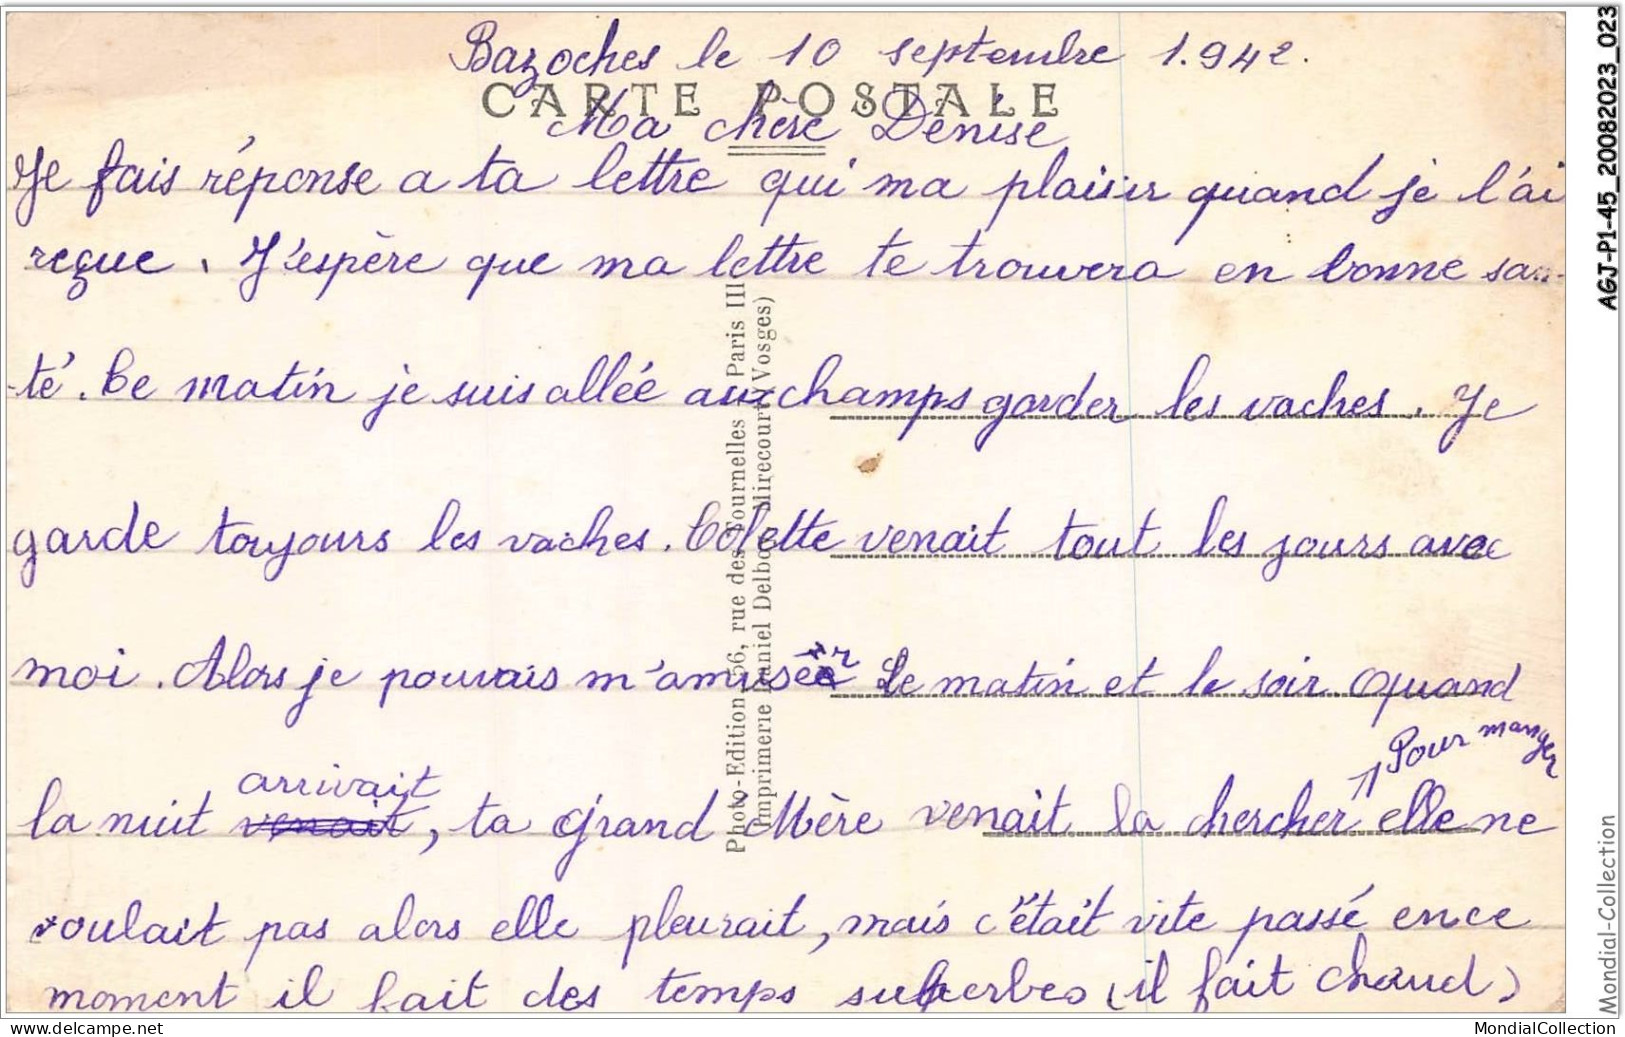 Bazoches le 10 septembre 1.942.
CARTE POSTALE
Ma chère Denise
Je fais réponse a ta lettre qui ma plaisir quand je l'ai
reçue. J'espère que ma lettre te trouvera en bonne san-
-té. Ce matin je suis allée aux champs garder les vaches. Je
garde toujours les vaches. Colette venait tout les jours avec
moi. Alors je pouvais m'amuser Le matin et le soir. Quand
Pour manger
arrivait
la nuit venait, ta Grand Mère venait la chercher elle ne
voulait pas alors elle pleurait, mais c'était vite passé en ce
moment il fait des temps superbes (il fait chaud)
Photo-Edition 56, rue des Tournelles Paris III
(Imprimerie Daniel Delboy, Mirecourt - Vosges)
AGJ-P1-45_20082023_023
Mondial-Collection
www.delcampe.net
MondialCollection